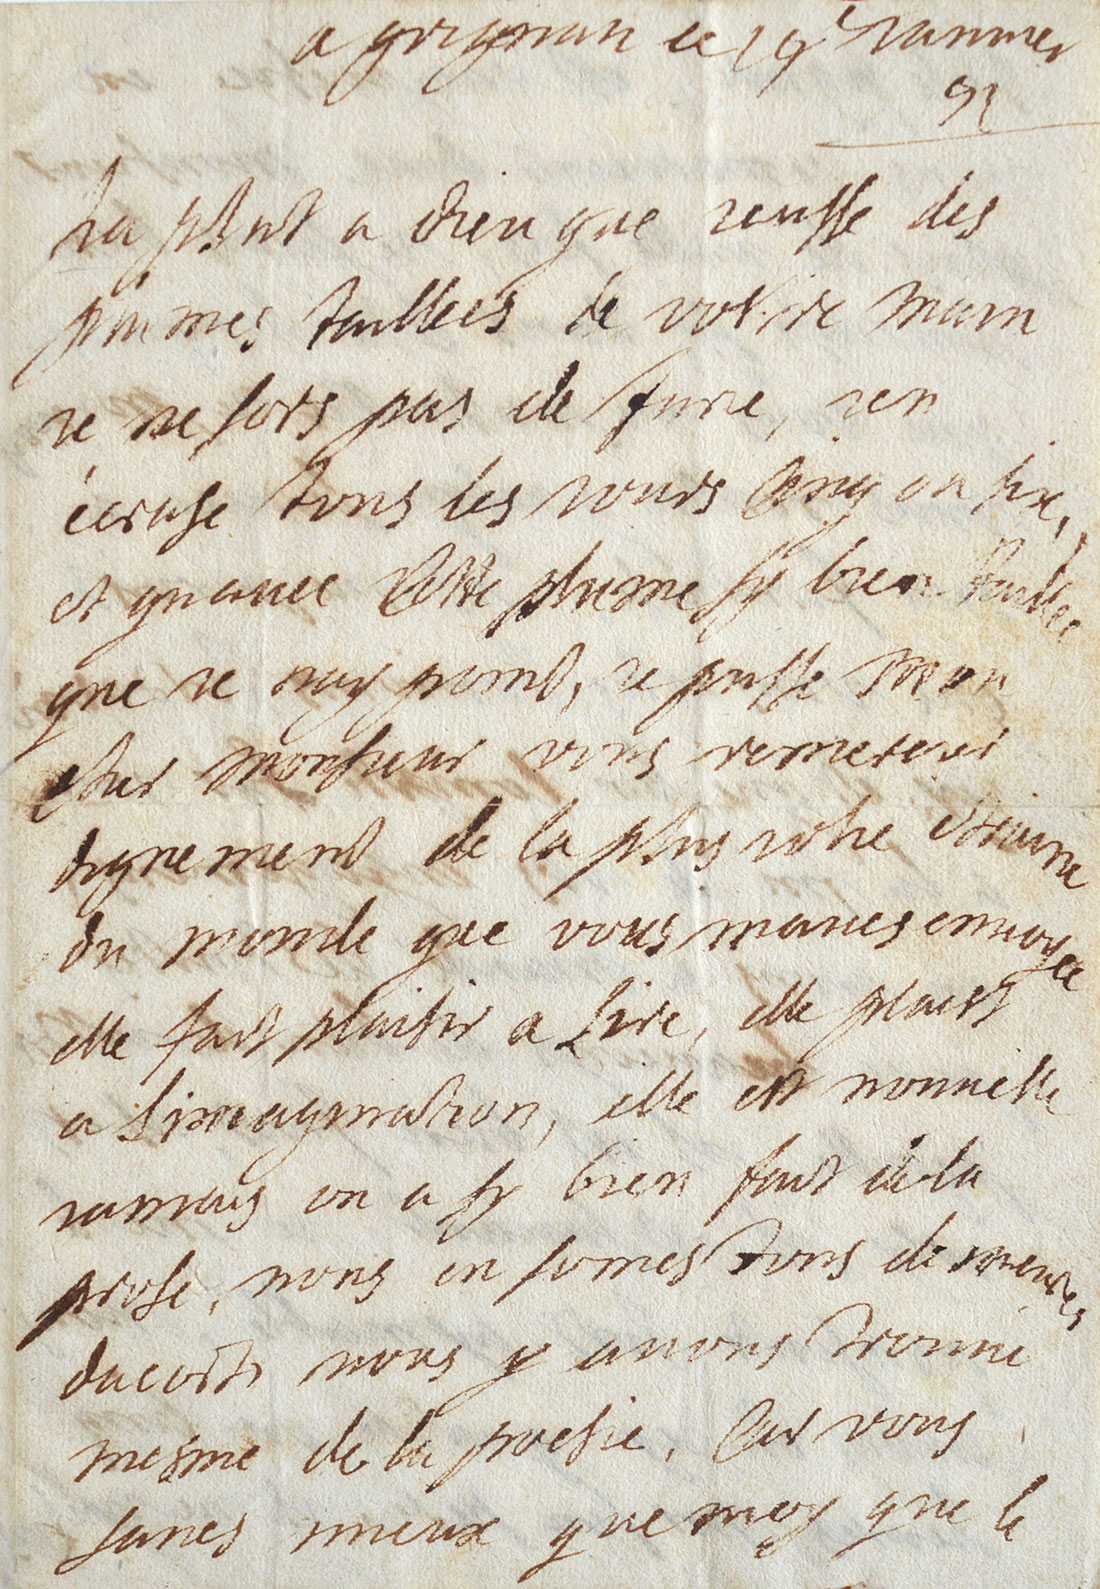 a grignan ce 19e Janvier
91
ha plut a dieu que jeusse des
plumes taillees de vostre main
je ne sors pas de furie, jen
écrase tous les jours cinq ou six,
et quavec cette plume sy bien taillée
que je nay point, je pusse mon
cher monsieur vous remercier
dignement de la plus
du monde que vous maves envoyée
elle fait plaisir a lire, elle plaist
a limagination, elle est nouvelle
jamais on a sy bien fait de la
prose, nous en somes tous demeures
dacort, nous y avons trouvé
mesme de la poesie, car vous
saves mieux que moy que le